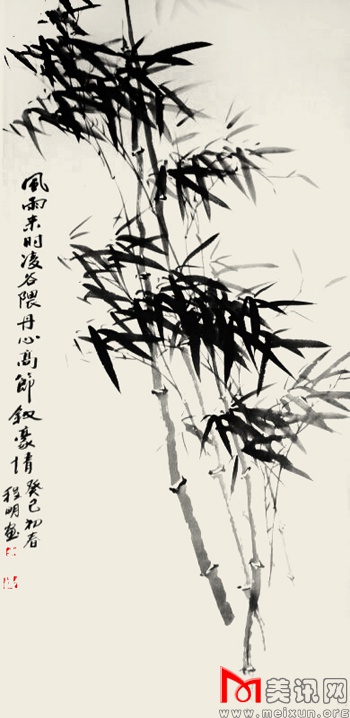 風雨来时凌谷隈丹心高節叙豪情
癸巳初春
程明画
美讯网
www.meixun.org